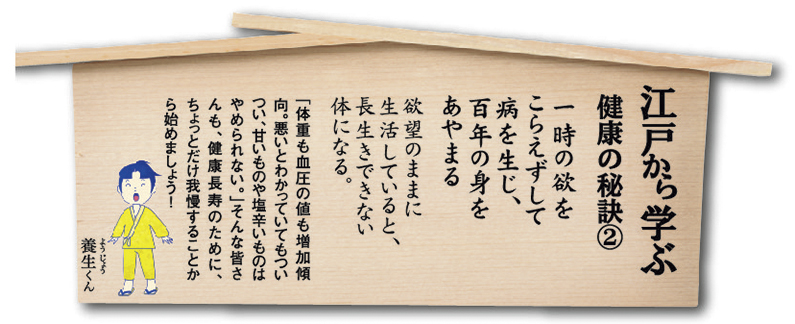 江戸から学ぶ
健康の秘訣②
一時の欲を
こらえずして
病を生じ、
百年の身を
あやまる
欲望のままに
生活していると、
長生きできない
体になる。
「体重も血圧の値も増加傾
向。悪いとわかっていてもつい
つい、甘いものや塩辛いものは
やめられない。」そんな皆さ
んも、健康長寿のために、
ちょっとだけ我慢することか
ら始めましょう！
ようじょう
養生くん